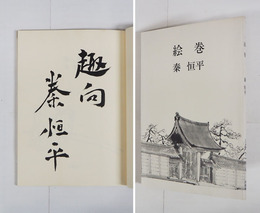 趣向
秦恒平
絵巻
秦 恒平